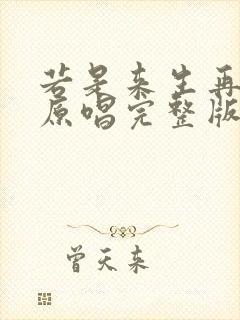 若是来生再
原唱完整版
曾天来